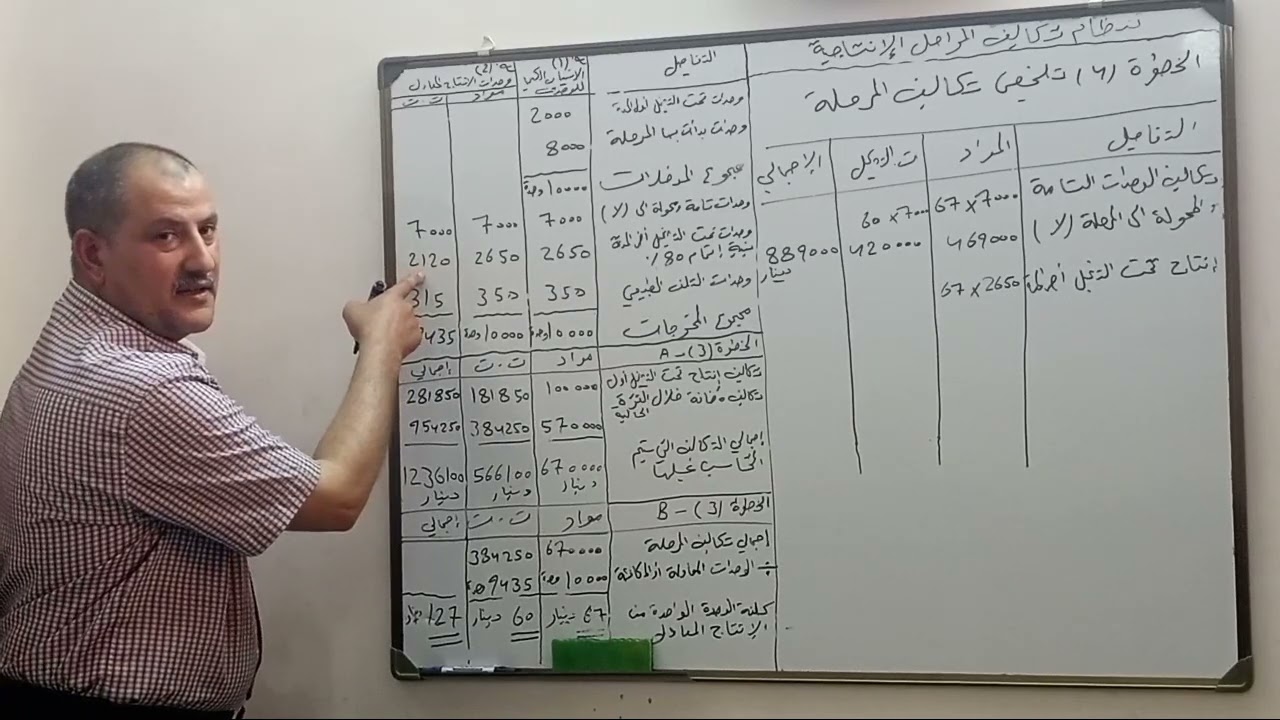 نظام تكاليف المراحل الإنتاجية
الخطوة (4) تلخيص تكاليف المرحلة
التفاصيل | المواد | ت التشكيل | الإجمالي
تكاليف الوحدات التامة | 67×7000 | 60×7000
المحولة الى المرحلة (لا) | 469000 | 420000 | 889000 دينار
إنتاج تحت التشغيل آخر المدة | 67×2650
التفاصيل | (1) | (2) وحدات الإنتاج المعادل
مواد | ت.ت
وحدات تحت التشغيل أول المدة | 2000
وحدات بدأت بها المرحلة | 8000
مجموع المدخلات | 10000 وحدة
وحدات تامة ومحولة الى (لا) | 7000 | 7000 | 7000
وحدات تحت التشغيل آخر المدة
بنسبة إتمام 80٪ | 2650 | 2650 | 2120
وحدات التلف الطبيعي | 350 | 350 | 315
مجموع المخرجات | 10000 وحدة | 10000 وحدة | 435
الخطوة (3) - A | مواد | ت.ت | إجمالي
تكاليف إنتاج تحت التشغيل أول | 100000 | 181850 | 281850
تكاليف مضافة خلال الفترة
الحالية | 570000 | 384250 | 954250
إجمالي التكاليف التي سيتم
المحاسبة عليها | 670000 دينار | 566100 دينار | 1236100 دينار
الخطوة (3) - B | مواد | ت.ت | إجمالي
إجمالي تكاليف المرحلة | 670000 | 384250
÷ الوحدات المعادلة أو المكافئة | 10000 وحدة | 9435 وحدة
كلفة الوحدة الواحدة من
الإنتاج المعادل | 67 دينار | 60 دينار | 127 دينار